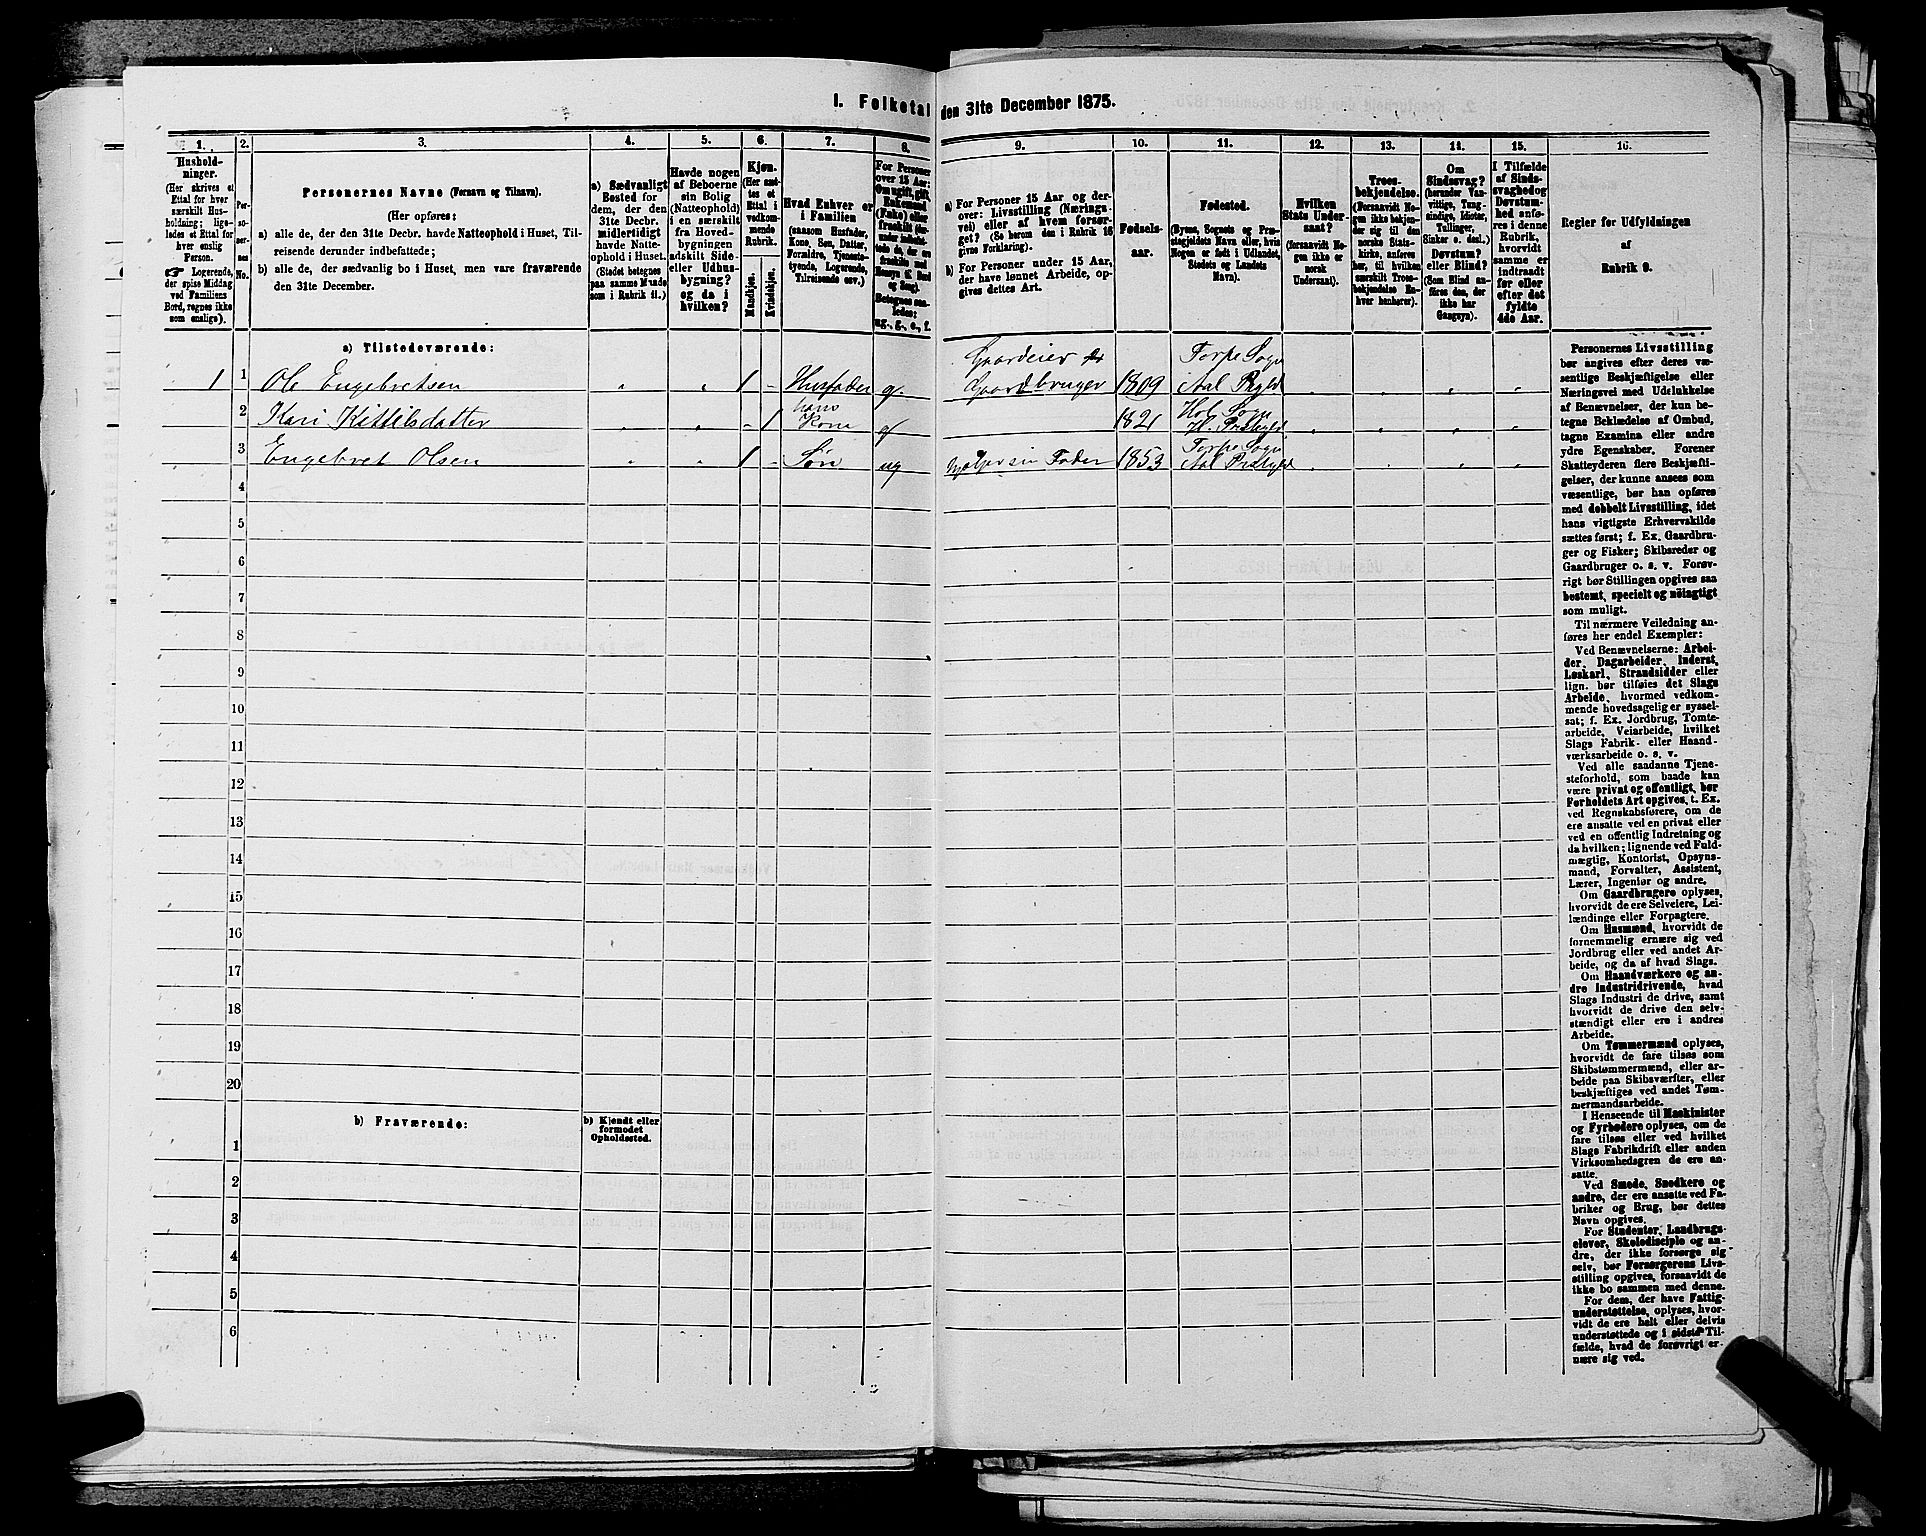 I. Folketal den 31te December 1875.
1.
Hushold-
ninger.
(Her skrives et
Ettal for hver
særskilt Hus-
holdning; lige-
ledes et Ettal for
hver enslig
Person.
☛ Logerende,
der spise Middag
ved Familiens
Bord, regnes ikke
som enslige).
2.
Per-
so-
ner-
nes
No.
3.
Personernes Navne (Fornavn og Tilnavn).
(Her opføres:
a) alle de, der den 31te Decbr. havde Natteophold i Huset, Til-
reisende derunder indbefattede;
b) alle de, der sædvanlig bo i Huset, men vare fraværende
den 31te December.
4.
a) Sædvanligt
Bosted for
dem, der den
31te Decbr.
midlertidigt
havde Natte-
ophold i Huset.
(Stedet betegnes
paa samme Maade
som i Rubrik 11.)
5.
Havde nogen
af Beboerne
sin Bolig
(Natteophold)
i en særskilt
fra Hoved-
bygningen
adskilt Side-
eller Udhus-
bygning?
og da i
hvilken?
6.
Kjøn.
(Her sæt-
tes et
Ettal i
vedkom-
mende
Rubrik.
Mandkjøn.
Kvindekjøn.
7.
Hvad Enhver er
i Familien
(saasom Husfader,
Kone, Søn, Datter,
Forældre, Tjeneste-
tyende, Logerende,
Tilreisende osv.)
8.
For Personer
over 15 Aar:
Om ugift, gift,
Enkemand
(Enke) eller
fraskilt
Betegnes saa-
ledes:
ug., g., e., f.
9.
a) For Personer 15 Aar og der-
over: Livsstilling (Nærings-
vei) eller af hvem forsør-
get? (Se herom des i Rubrik 16
givne Forklaring).
b) For Personer under 15 Aar,
der have lønnet Arbeide, op-
gives dettes Art.
10.
Fødsels-
aar.
11.
Fødested.
(Byens, Sognets og Præ-
stegjeldets Navn eller, hvis
Nogen er født i Udlandet,
Stedets og Landets
Navn).
12.
Hvilken
Stats Under-
saat?
(forsaavidt No-
gen ikke er
norsk
Undersaat).
13.
Troes-
bekjendelse.
(Forsaavidt No-
gen ikke bekjen-
der sig til den
norske Stats-
kirke, anføres
her, til hvilken
særskilt Troes-
bekjendelse En-
hver henhører).
14.
Om
Sindssvag?
(herunder Van-
vittige, Tung-
sindige, Idioter,
Tullinger,
Sinker o. desl.)
Døvstum?
eller Blind?
(Som Blind an-
føres den, der
ikke har
Gangsyn).
15.
I Tilfælde
af Sinds-
svaghed og
Døvstum-
hed anfø-
res i denne
Rubrik,
hvorvidt
samme er
indtraadt
før eller
efter det
fyldte
4de Aar.
16.
Regler for Udfyldningen
af
Rubrik 9.
a) Tilstedeværende:
1 1 Ole Engebretsen " " 1 - Husfader g. Gaardeier Gaardbruger 1809 Torpe Sogn Aal Prgld
2 Kari Kittilsdatter " " - 1 hans Kone g 1821 Hol Sogn H. Prstgld
3 Engebret Olsen " " 1 - Søn ug hjælper sin Fader 1853 Torpe Sogn Aal Prstgld
4
5
6
7
8
9
10
11
12
13
14
15
16
17
18
19
20
b) Fraværende:
b) Kjendt eller
formodet
Opholdssted.
1
2
3
4
5
6
Personernes Livsstilling
bør angives efter deres væ-
sentlige Beskjæftigelse eller
Næringsvei med Udelukkelse
af Benævnelser, der kun be-
tegne Beklædelse af Ombud,
tagne Examina eller andre
ydre Egenskaber. Forener
Skatteyderen flere Beskjæfti-
gelser, der kunne ansees som
væsentlige, bør han opføres
med dobbelt Livsstilling, idet
hans vigtigste Erhvervskilde
sættes først; f. Ex. Gaardbru-
ger og Fisker; Skibsreder og
Gaardbruger o. s. v. Forøv-
rigt bør Stillingen opgives saa
bestemt, specielt og nøiagtigt
som muligt.
Til nærmere Veiledning an-
føres her endel Exempler:
Ved Benævnelserne: Arbei-
der, Dagarbeider, Inderst,
Løskarl, Strandsidder eller
lign. bør tilføies det Slags
Arbeide, hvormed vedkom-
mende hovedsagelig er syssel-
sat; f. Ex. Jordbrug, Tomte-
arbeide, Veiarbeide, hvilket
Slags Fabrik- eller Haand-
værksarbeide o. s. v.
Ved alle saadanne Tjene-
steforhold, som baade kan
være privat og offentligt, bør
Forholdets Art opgives, t. Ex.
ved Regnskabsførere, om de
ere ansatte ved en privat eller
ved en offentlig Indretning og
da hvilken; lignende ved Fuld-
mægtig, Kontorist, Opsyns-
mand, Forvalter, Assistent,
Lærer, Ingeniør og andre.
Om Gaardbrugere oplyses,
hvorvidt de ere Selveiere, Lei-
lændinge eller Forpagtere.
Om Husmænd, hvorvidt de
fornemmelig ernære sig ved
Jordbrug eller ved andet Ar-
beide, og da af hvad Slags.
Om Haandværkere og an-
dre Industridrivende, hvad
Slags Industri de drive, samt
hvorvidt de drive den selv-
stændigt eller ere i andres
Arbeide.
Om Tømmermænd oplyses,
hvorvidt de fare tilsøs som
Skibstømmermænd, eller ar-
beide paa Skibsværfter, eller
beskjæftiges ved andet Tøm-
mermandsarbeide.
I Henseende til Maskinister
og Fyrbødere oplyses, om de
fare tilsøs eller ved hvilket
Slags Fabrikdrift eller anden
Virksomhedsgren de ere an-
satte.
Ved Smede, Snedkere og
andre, der ere ansatte ved Fa-
briker og Brug, bør dettes
Navn opgives.
For Studenter, Landbrugs-
elever, Skoledisciple og an-
dre, der ikke forsørge sig
selv, bør Forsørgerens Livs-
stilling opgives, forsaavidt de
ikke bo sammen med denne.
For dem, der have Fattig-
understøttelse, oplyses, hvor-
vidt de ere helt eller delvis
understøttede og i sidste Til-
fælde, hvad de forøvrigt er-
nære sig ved.